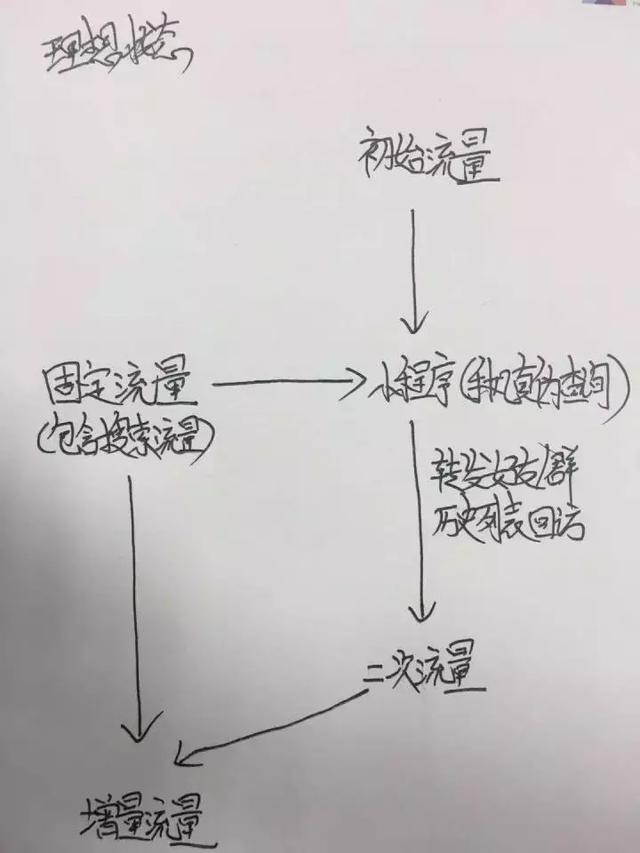 理想状态
初始流量
固定流量
(包含搜索流量)
小程序(手机真伪查询)
转发好友/群
历史列表回访
二次流量
增量流量